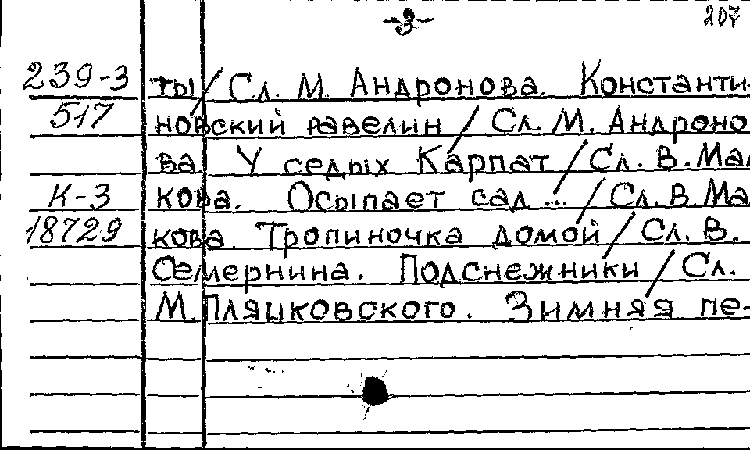 -3-
207
239-3 ты / Сл. М. Андронова. Константи-
517 новский равелин / Сл. М. Андроно
ва. У седых Карпат / Сл. В. Мал
К-3 кова. Осыпает сад ... / Сл. В. Ма
18729 кова. Тропиночка домой / Сл. В.
Семернина. Подснежники / Сл.
М. Пляцковского. Зимняя пе-